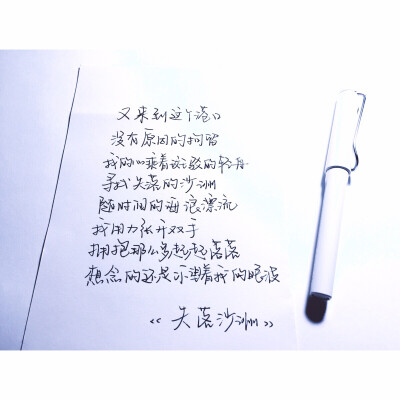 又来到这个港口
没有原因的拘留
我的心乘着斑驳的轻舟
寻找失落的沙洲
随时间的海浪漂流
我用力张开双手
拥抱那么多起起落落
想念的还是你望着我的眼波
《失落沙洲》